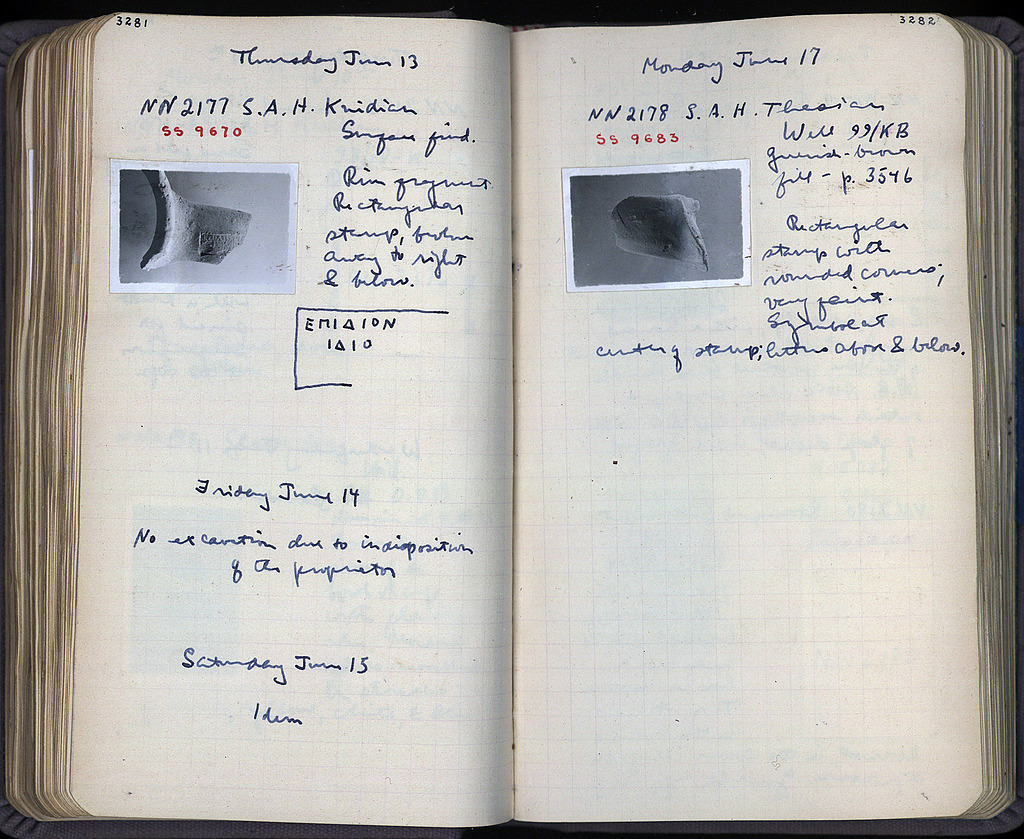 3281
Thursday June 13
NN 2177 S.A.H. Knidian
SS 9670
Surface find.
Rim fragment
Rectangular
stamp, broken
away to right
& below.
ΕΠΙΔΙΟΝ
ΙΔΙΟ
Friday June 14
No excavation due to indisposition
of the proprietor
Saturday June 15
Idem
3282
Monday June 17
NN 2178 S.A.H. Thasian
SS 9683
Well 99/KB
greenish-brown
fill – p. 3546
Rectangular
stamp with
rounded corners;
very faint.
Symbol at
center of stamp; letters above & below.